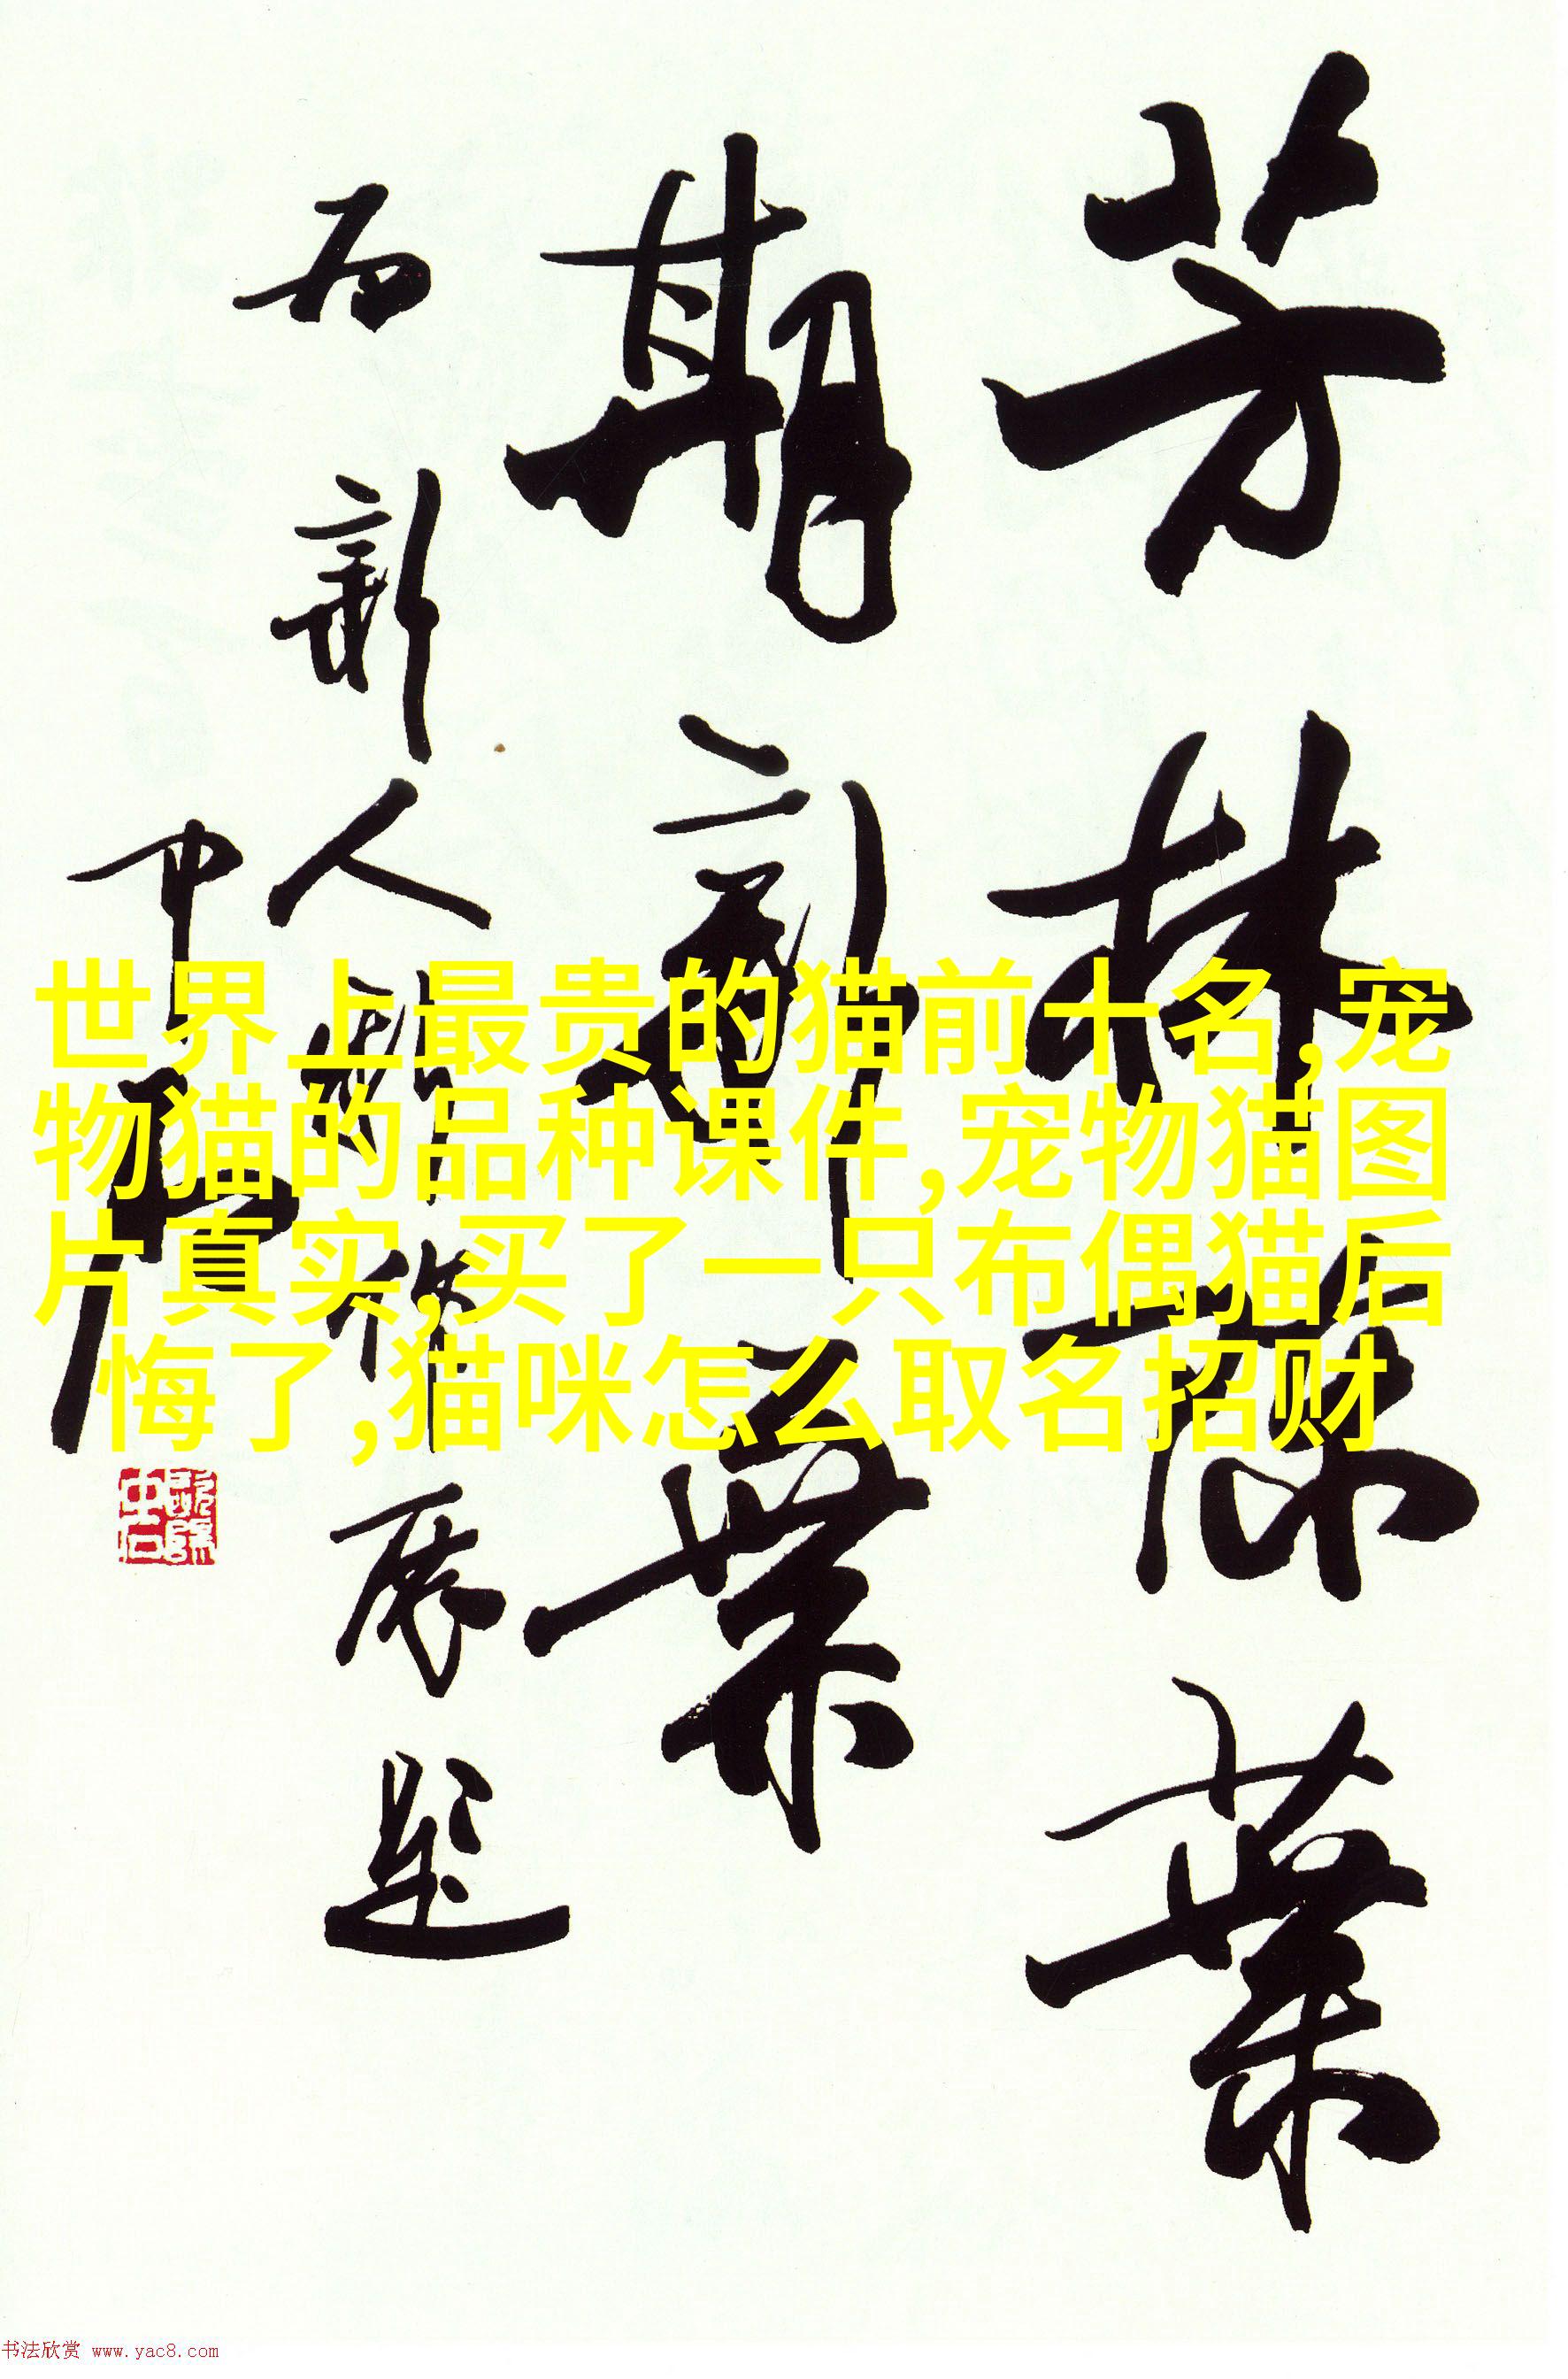 芳林陈叶
期新叶
为新人新作展题
中石
世界上最贵的猫前十名,宠
物猫的品种课件,宠物猫图
片真实,买了一只布偶猫后
悔了,猫咪怎么取名招财
书法欣赏 www.yac8.com